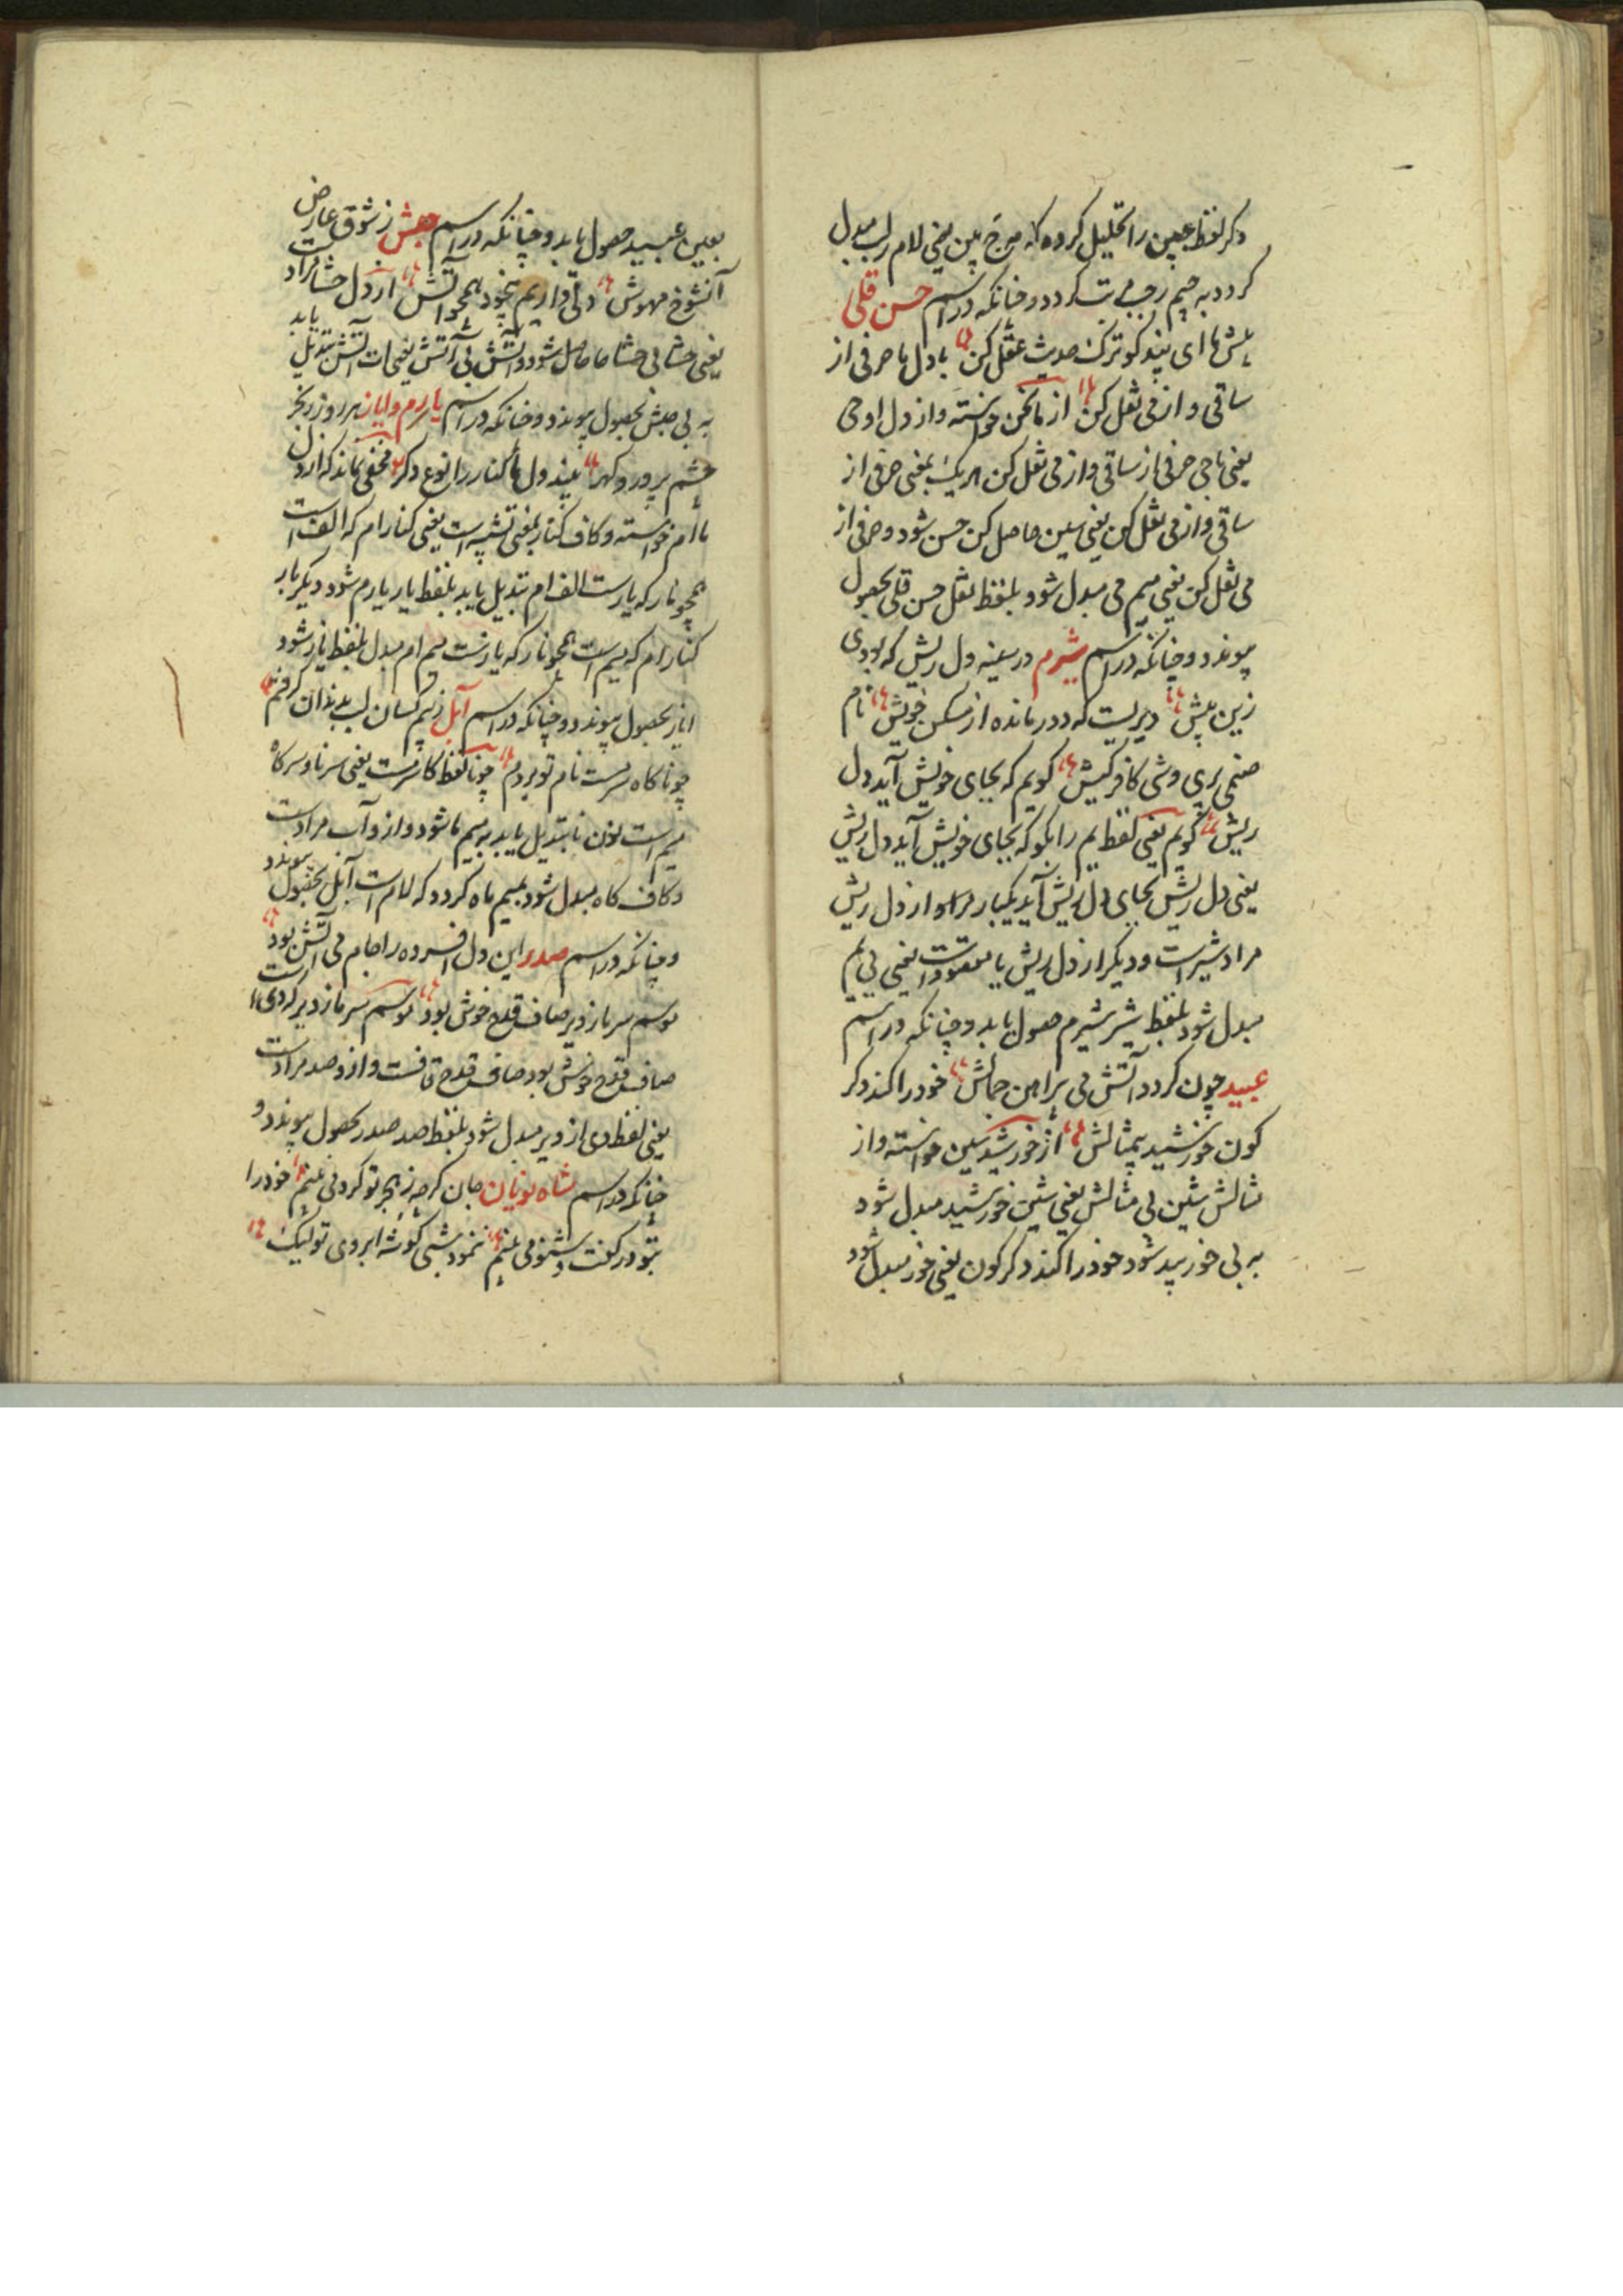 دکر لفظ عجین را تحلیل کرده که مرج بین یعنی لام لب مبدل
کردد به جیم رجب می‌ت کردد و چنانکه در اسم حسن قلی
ای پند کو ترک حدیث عقل کن با دل ما حرفی از
ساقی و از می نقل کن از ما نحن خواسته و از دل او حی
یعنی با حی حرفی از ساقی و از می نقل کن هر یک بمعنی حرفی از
ساقی و از می نقل کن یعنی سین حاصل کن حسن شود و حرفی از
می نقل کن یعنی میم می مبدل شود بلفظ نقل حسن قلی بحصول
پیوندد و چنانکه در اسم شیرم در سینه دل ریش که بودی
زین پیش دیریست که دور مانده از مسکن خویش نام
صنمی پری وشی کافر کیش کویم که بجای خویش آید دل
ریش کویم یعنی لفظ یم را بکو که بجای خویش آید دل ریش
یعنی دل ریش بجای دل ریش آید یکبار مراد از دل ریش
مراد شیر است و دیکر از دل ریش یا مقصود است یعنی بی یم
مبدل شود بلفظ شیر شیرم حصول یابد و چنانکه در اسم
عبید چون کردد آتش می پیرامن جمالش خود را کند دکر
کون خورشید بیمثالش از خورشید سین خواسته و از
مثالش شین بی مثالش یعنی شین خورشید مبدل شود
به بی خور بید شود خود را کند دکر کون یعنی خور مبدل شود
بعین عبید حصول یابد و چنانکه در اسم حبش ز شوق عارض
آنشوخ مهوش دلی داریم بیخود همچو آتش از دل حشا مراد است
یعنی حشا بی حشا حا حاصل شود و آتش بی آتش یعنی ات آتش تبدیل یابد
به بی حبش بحصول پیوندد و چنانکه در اسم یارم و ایاز هر روز ز بحر
چشم پر ور و کهر بیند دل ما کنار را نوع دکر مخفی نماند که از دل
ما ام خواسته و کاف کنار بمعنی تشبیه است یعنی کنار ام که الف است
همچو نار که یار است الف ام تبدیل یابد بلفظ یار یارم شود دیکر بار
کنار ام که میم است همچو نار که یاز است میم ام مبدل بلفظ یاز شود
ایاز بحصول پیوندد و چنانکه در اسم آبل ز بیم کسان لب بدندان کرفتم
چو نا کاه سرمست نام تو بردم چو نا لفظ کا سرمست یعنی سر نا و سر کاه
میم است نون نا تبدیل یابد به میم ما شود و از و آب مراد است
و کاف کاه مبدل شود بمیم ماه کردد که لام است آبل بحصول پیوندد
و چنانکه در اسم صدر این دل افسرده را جام می آتش بود
موسم سرما ز دیر صاف قدح خوش بود موسم سرما ز دیر که دی است
صاف قدح خوش بود صاف قدح قافست و از و صد مراد است
یعنی لفظ دی از دیر مبدل شود بلفظ صد صدر بحصول پیوندد و
چنانکه در اسم شاه بونیان جان کر چه ز هجر تو کردبی غنیم خود را
بتو در کفت و شنو می بینم ننمود شبی کوشه ابروی تو لیک